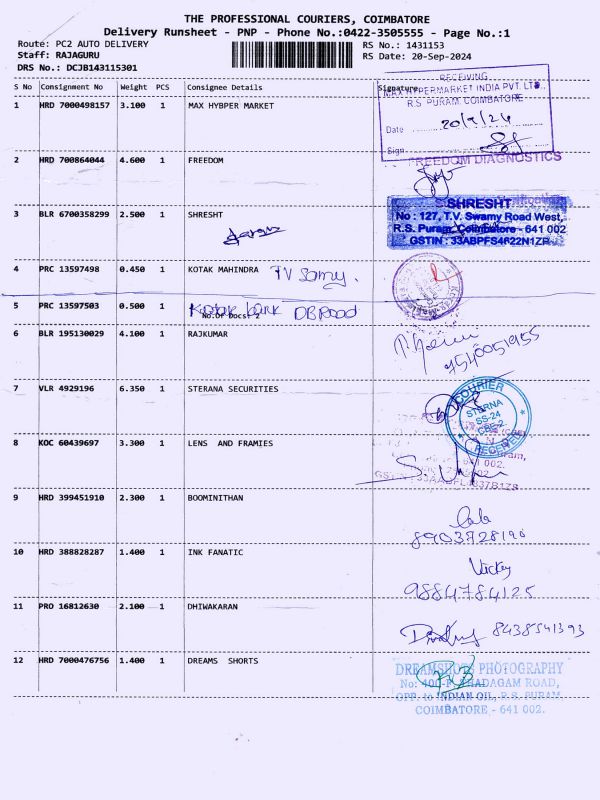 THE PROFESSIONAL COURIERS, COIMBATORE
Delivery Runsheet - PNP - Phone No.:0422-3505555 - Page No.:1
Route: PC2 AUTO DELIVERY
RS No.: 1431153
Staff: RAJAGURU
RS Date: 20-Sep-2024
DRS No.: DCJB143115301
S No Consignment No Weight PCS Consignee Details Signature
RECEIVING
MAX HYPERMARKET INDIA PVT. LTD.,
R.S. PURAM, COIMBATORE
Date 20/9/24
Sign
1 HRD 7000498157 3.100 1 MAX HYBPER MARKET
2 HRD 700864044 4.600 1 FREEDOM
FREEDOM DIAGNOSTICS
3 BLR 6700358299 2.500 1 SHRESHT
SHRESHT
No : 127, T.V. Swamy Road West,
R.S. Puram, Coimbatore - 641 002
GSTIN : 33ABPFS4622N1ZR
4 PRC 13597498 0.450 1 KOTAK MAHINDRA TV Samy.
5 PRC 13597503 0.500 1 Kotak bank DB Road
No.Of Docs: 2
6 BLR 195130029 4.100 1 RAJKUMAR
7540051955
7 VLR 4929196 6.350 1 STERANA SECURITIES
COURIER
STERNA
SS-24
CBE-2
RECEIVED
8 KOC 60439697 3.300 1 LENS AND FRAMIES
641 002.
9 HRD 399451910 2.300 1 BOOMINITHAN
8903728190
10 HRD 388828287 1.400 1 INK FANATIC
Vickey
9884784125
11 PRO 16812630 2.100 1 DHIWAKARAN
8438541393
12 HRD 7000476756 1.400 1 DREAMS SHORTS
DREAMSHOTS PHOTOGRAPHY
No: 400-F, THADAGAM ROAD,
OPP. to INDIAN OIL, R.S. PURAM,
COIMBATORE - 641 002.